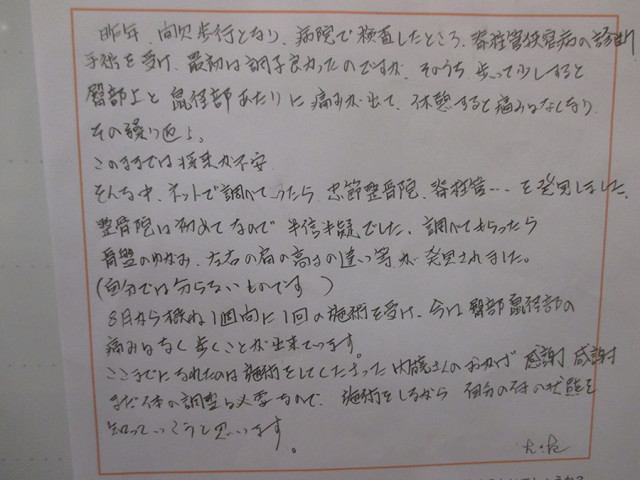 昨年、間欠歩行となり、病院で検査したところ、脊柱管狭窄病の診断
手術を受け、最初は調子良かったのですが、そのうち歩って少しすると
臀部上と鼠径部あたりに痛みが出て、休憩すると痛みはなくなり
その繰り返し、
このままでは将来が不安
そんな中、ネットで調べていたら 忠節整骨院、脊柱管…を発見しました。
整骨院は初めてなので半信半疑でした、調べてもらったら
骨盤のゆがみ、左右の肩の高さの違い等が発見されました。
(自分では分らないものです)
8月から概ね1週間に1回の施術を受け、今は臀部鼠径部の
痛みはなく歩くことが出来ています。
ここまでになれたのは施術をしてくださった さんのおかげ 感謝 感謝
まだ体の調整も必要なので、施術をしながら 自分の体の状態を
知っていこうと思います。